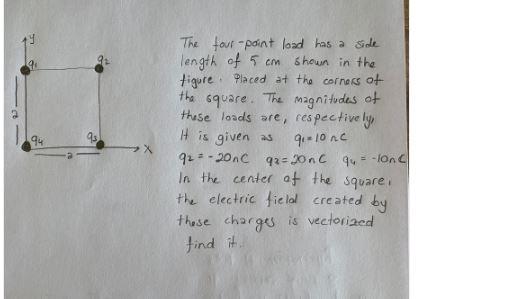 y
q1
q2
a
q4
q3
x
a
The four-point load has a side
length of 5 cm shown in the
figure. Placed at the corners of
the square. The magnitudes of
these loads are, respectively,
It is given as q1=10 nC
q2=-20nC q3=20nC q4=-10nC
In the center of the square,
the electric field created by
these charges is vectorized
find it.